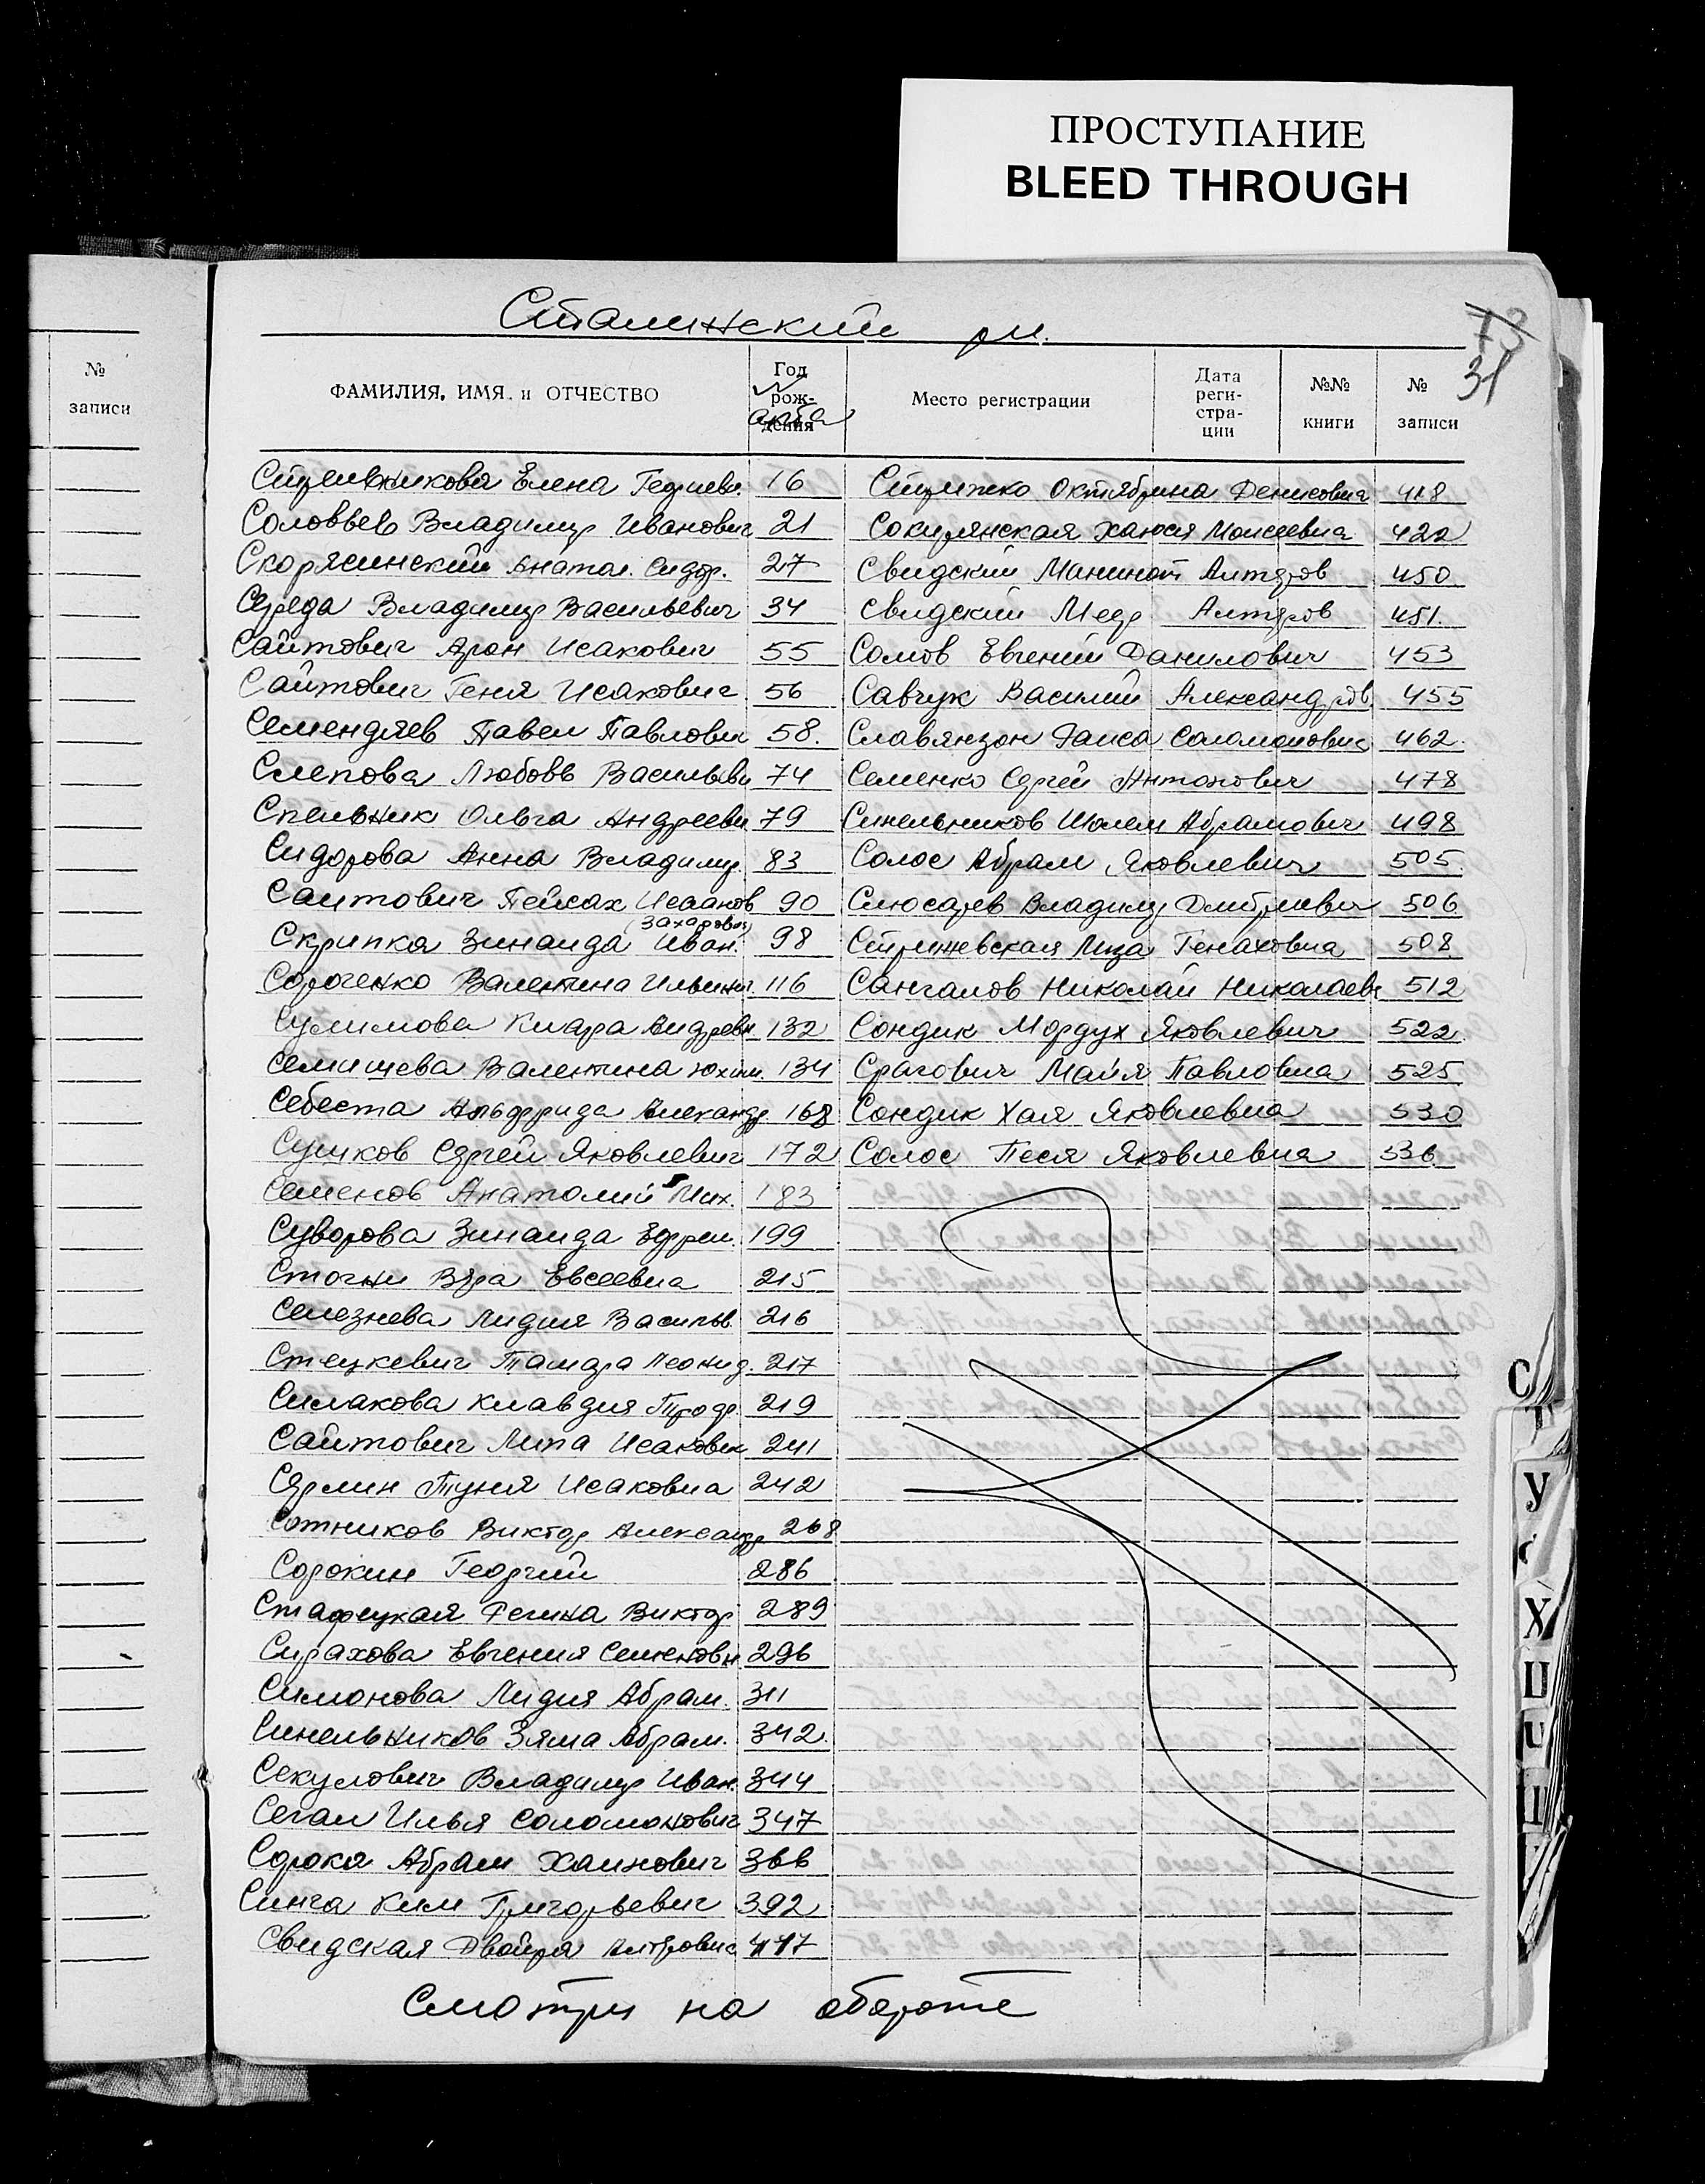 ПРОСТУПАНИЕ
BLEED THROUGH
Сталинский рн.
73
31
№ записи
ФАМИЛИЯ, ИМЯ и ОТЧЕСТВО Год рождения № акта Место регистрации Дата регистрации №№ книги № записи
Елена 16 Стрижко Октябрина Денисовна 418
Соловьев Владимир Иванович 21 Сокирянская Хаюся Моисеевна 422
Анатол. Сидор. 27 Свидский Алтеров 450
Середа Владимир Васильевич 34 Свидский Меер Алтеров 451.
Саитович Арон Исакович 55 Сомов Евгений Данилович 453
Саитович Геня Исакович 56 Савчук Василий Александров. 455
Семендяев Павел Павлович 58. Славянзон Раиса Соломоновна 462.
Слепова Любовь Васильевн 74 Семенко Сергей Антонович 478
Спельник Ольга Андреевн 79 Синельников Шолем Абрамович 498
Сидорова Анна Владимир. 83 Солос Абрам Яковлевич 505.
Саитович Пейсах Исааков 90 Слюсарев Владимир Дмитриевич 506
(Захаровна)
Скрипка Зинаида Иван. 98 Стрижевская Лиза Генаховна 508.
Сороченко Валентина Ильинич. 116 Сангалов Николай Николаев 512
Сулимова Клара Андреевн. 132 Сондик Мордух Яковлевич 522
Семищева Валентина 134 Срагович Майя Павловна 525
Себеста Альфрида Александр 168 Сондик Хая Яковлевна 530
Сушков Сергей Яковлевич 172 Солос Песя Яковлевна 536
Семенов Анатолий Мих. 183
Суворова Зинаида Ефрем. 199
Стогни Вера Евсеевна 215
Селезнева Лидия Васильв 216
Стецкевич Тамара Леонид. 217
Симакова Клавдия 219
Саитович Липа Исакович 241
Серлин Туня Исаковна 242
Сотников Виктор Александр 268
Сорокин Георгий 286
Регина Виктор 289
Страхова Евгения Семеновн 296
Симонова Лидия Абрам. 311
Синельников Зяма Абрам. 342.
Секулович Владимир Иван. 344
Сегал Илья Соломонович 347
Сорока Абрам Хаимович 366
Синга Ким Григорьевич 392
Свидская Двойра Алтеровна 417
Смотри на обороте
С
Т
У
Х